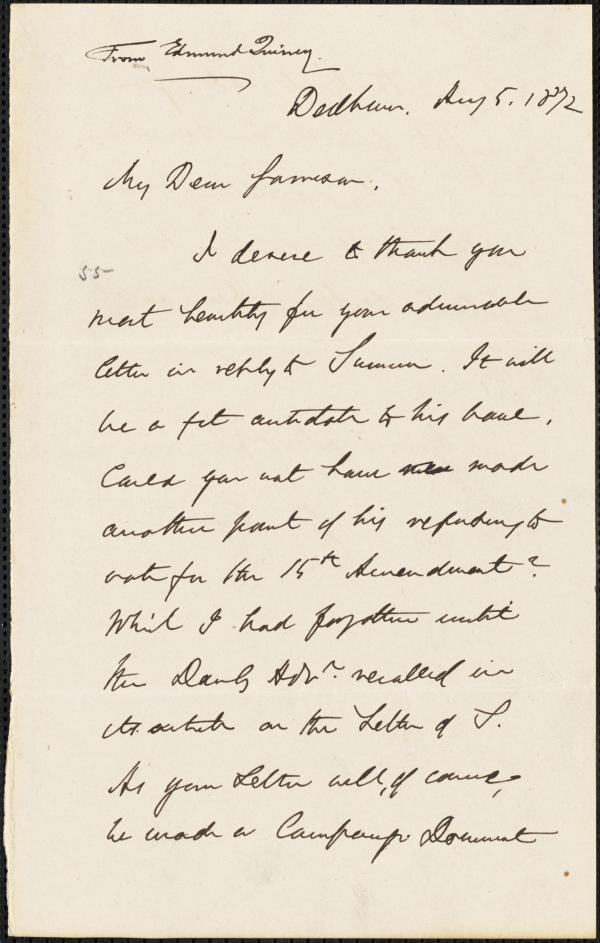 From Edmund Quincy.
Dedham. Aug 5. 1872
My Dear Garrison,
I desire to thank you
55-
most heartily for your admirable
letter in reply to Sumner. It will
be a fit antidote to his bane.
Could you not have made
another point of his refusing to
vote for the 15th Amendment?
Which I had forgotten until
the Daily Advr. recalled in
its article on the Letter of S.
As your Letter will, of course,
be made a Campaign Document